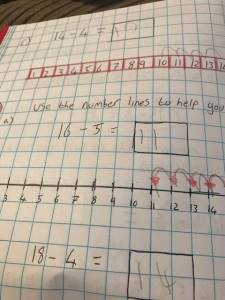 c) 14 - 4 = 10
1 2 3 4 5 6 7 8 9 10 11 12 13 14
Use the number lines to help you
a)
16 - 5 = 11
3 4 5 6 7 8 9 10 11 12 13 14
18 - 4 = 14